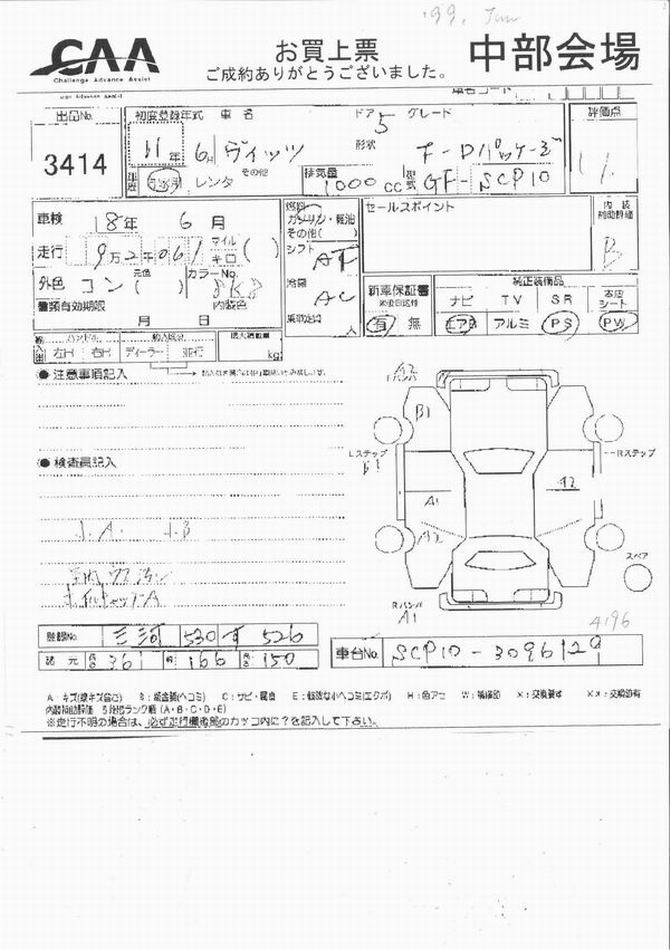 '99. Jun
CAA
Challenge Advance Assist
お買上票
ご成約ありがとうございました。
中部会場
車名コード
出品No.
3414
初度登録年式 車名
11年 6月 ヴィッツ
ドア 5 グレード
形状 F-Dパッケージ
車歴 自家用 レンタ その他
排気量 1000 CC 型式 GF-SCP10
評価点
車検 18年 6月
走行 9万2千061 マイル キロ ( )
外色 元色 ( ) カラーNo.
書類有効期限 月 日 内装色
燃料 ガソリン・軽油
その他( )
シフト AT
冷房 AC
乗車定員 人
セールスポイント
内装補助評価
B
新車保証書
有 無
純正装備品
ナビ TV SR 本革シート
エアB アルミ PS PW
輸入車 ハンドル 左H 右H
ディーラー 並行
最大積載量 kg
● 注意事項記入
● 検査員記入
A2
Fバンパ
B1
Lステップ
Rステップ
A1
A2
スペア
Rバンパ
A1
4196
登録No. 三河 530 す 526
諸元 長さ 361 幅 166 高さ 150
車台No. SCP10-3096129
A:キズ(線キズ含む) B:板金跡(ヘコミ) C:サビ・腐食 E:軽微な小ヘコミ(エクボ) H:色アセ W:補修跡 X:交換要す XX:交換跡有
内装補助評価 5段階ランク順 (A・B・C・D・E)
※走行不明の場合は、必ず走行機構部のカッコ内に?を記入して下さい。